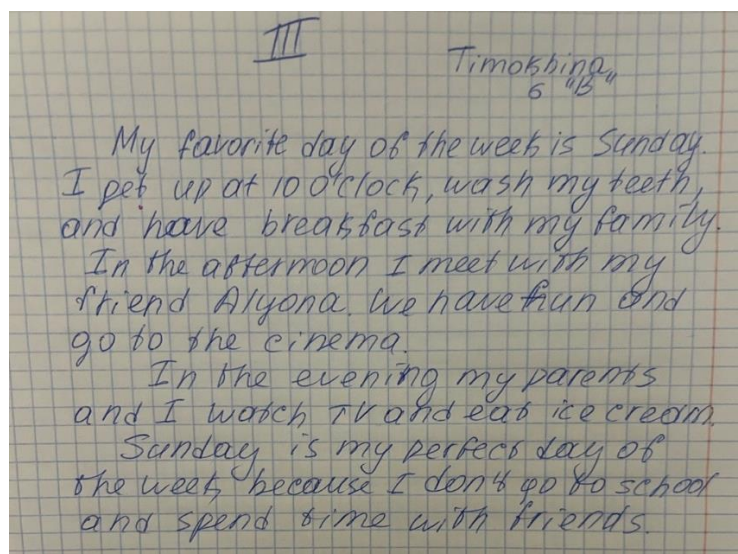 III
Timokhina
6 "B"
My favorite day of the week is Sunday.
I get up at 10 o'clock, wash my teeth,
and have breakfast with my family.
In the afternoon I meet with my
friend Alyona. We have fun and
go to the cinema.
In the evening my parents
and I watch TV and eat ice cream.
Sunday is my perfect day of
the week, because I don't go to school
and spend time with friends.